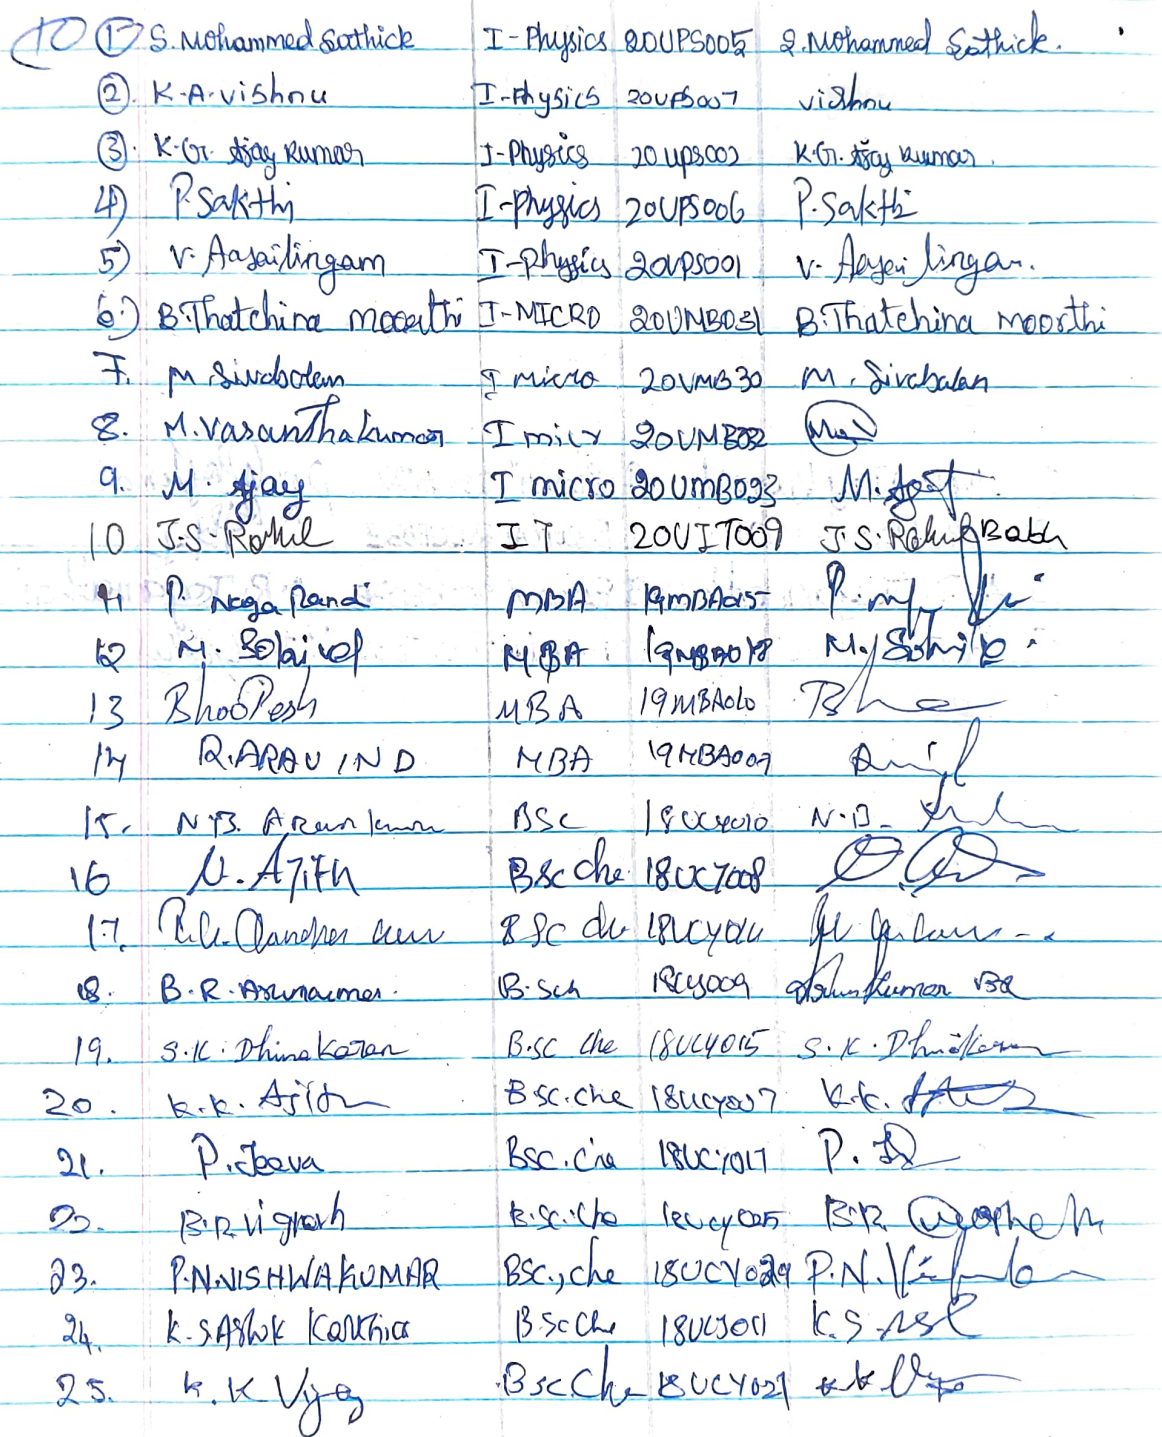 10 1) S. Mohammed Sathick I-Physics 20UPS005 S. Mohammed Sathick.
2. K.A. vishnu I-Physics 20UPS007 vishnu
3. K.G. Ajay Kumar I-Physics 20UPS002 K.G. Ajay Kumar.
4) P. Sakthi I-Physics 20UPS006 P. Sakthi
5) V. Aasailingam I-Physics 20UPS001 V. Aasailingam.
6.) B. Thatchina moorthi I-MICRO 20UMB031 B. Thatchina moorthi
7. M Sivabalan I micro 20UMB30 M. Sivabalan
8. M. Vasanthakumar I micr 20UMB032
9. M. Ajay I micro 20UMB023 M. Ajay
10 J.S. Rahul IT 20UIT009 J.S. Rahul Babu
11 P. Naga Pandi MBA 19MBA015 P.
12 M. Solaivel MBA 19MBA018 M.
13 BhooPesh MBA 19MBA010
14 R. ARAVIND MBA 19MBA007
15. N.B. Arun kumar BSc 18UCY010 N.B.
16 N. Ajith BSc che 18UCY008
17. BSc che
18. B.R. Arunkumar. B.Sch 18CY009 Arunkumar BR
19. S.K. Dhinakaran B.SC che 18UCY015 S.K. Dhinakaran
20. K.K. Ajith BSC.che 18UCY007 K.K.
21. P. Jeeva BSC.Che 18UCY017 P.
22. B.R. Vignesh B.SC.Che 18UCY025 B.R.
23. P.N.VISHWAKUMAR BSC.,che 18UCY029 P.N.
24. K.S Ashok Karthick B.Sc Che 18UCY011 K.S.
25. K.K Vijay BSc Che 18UCY027 KK